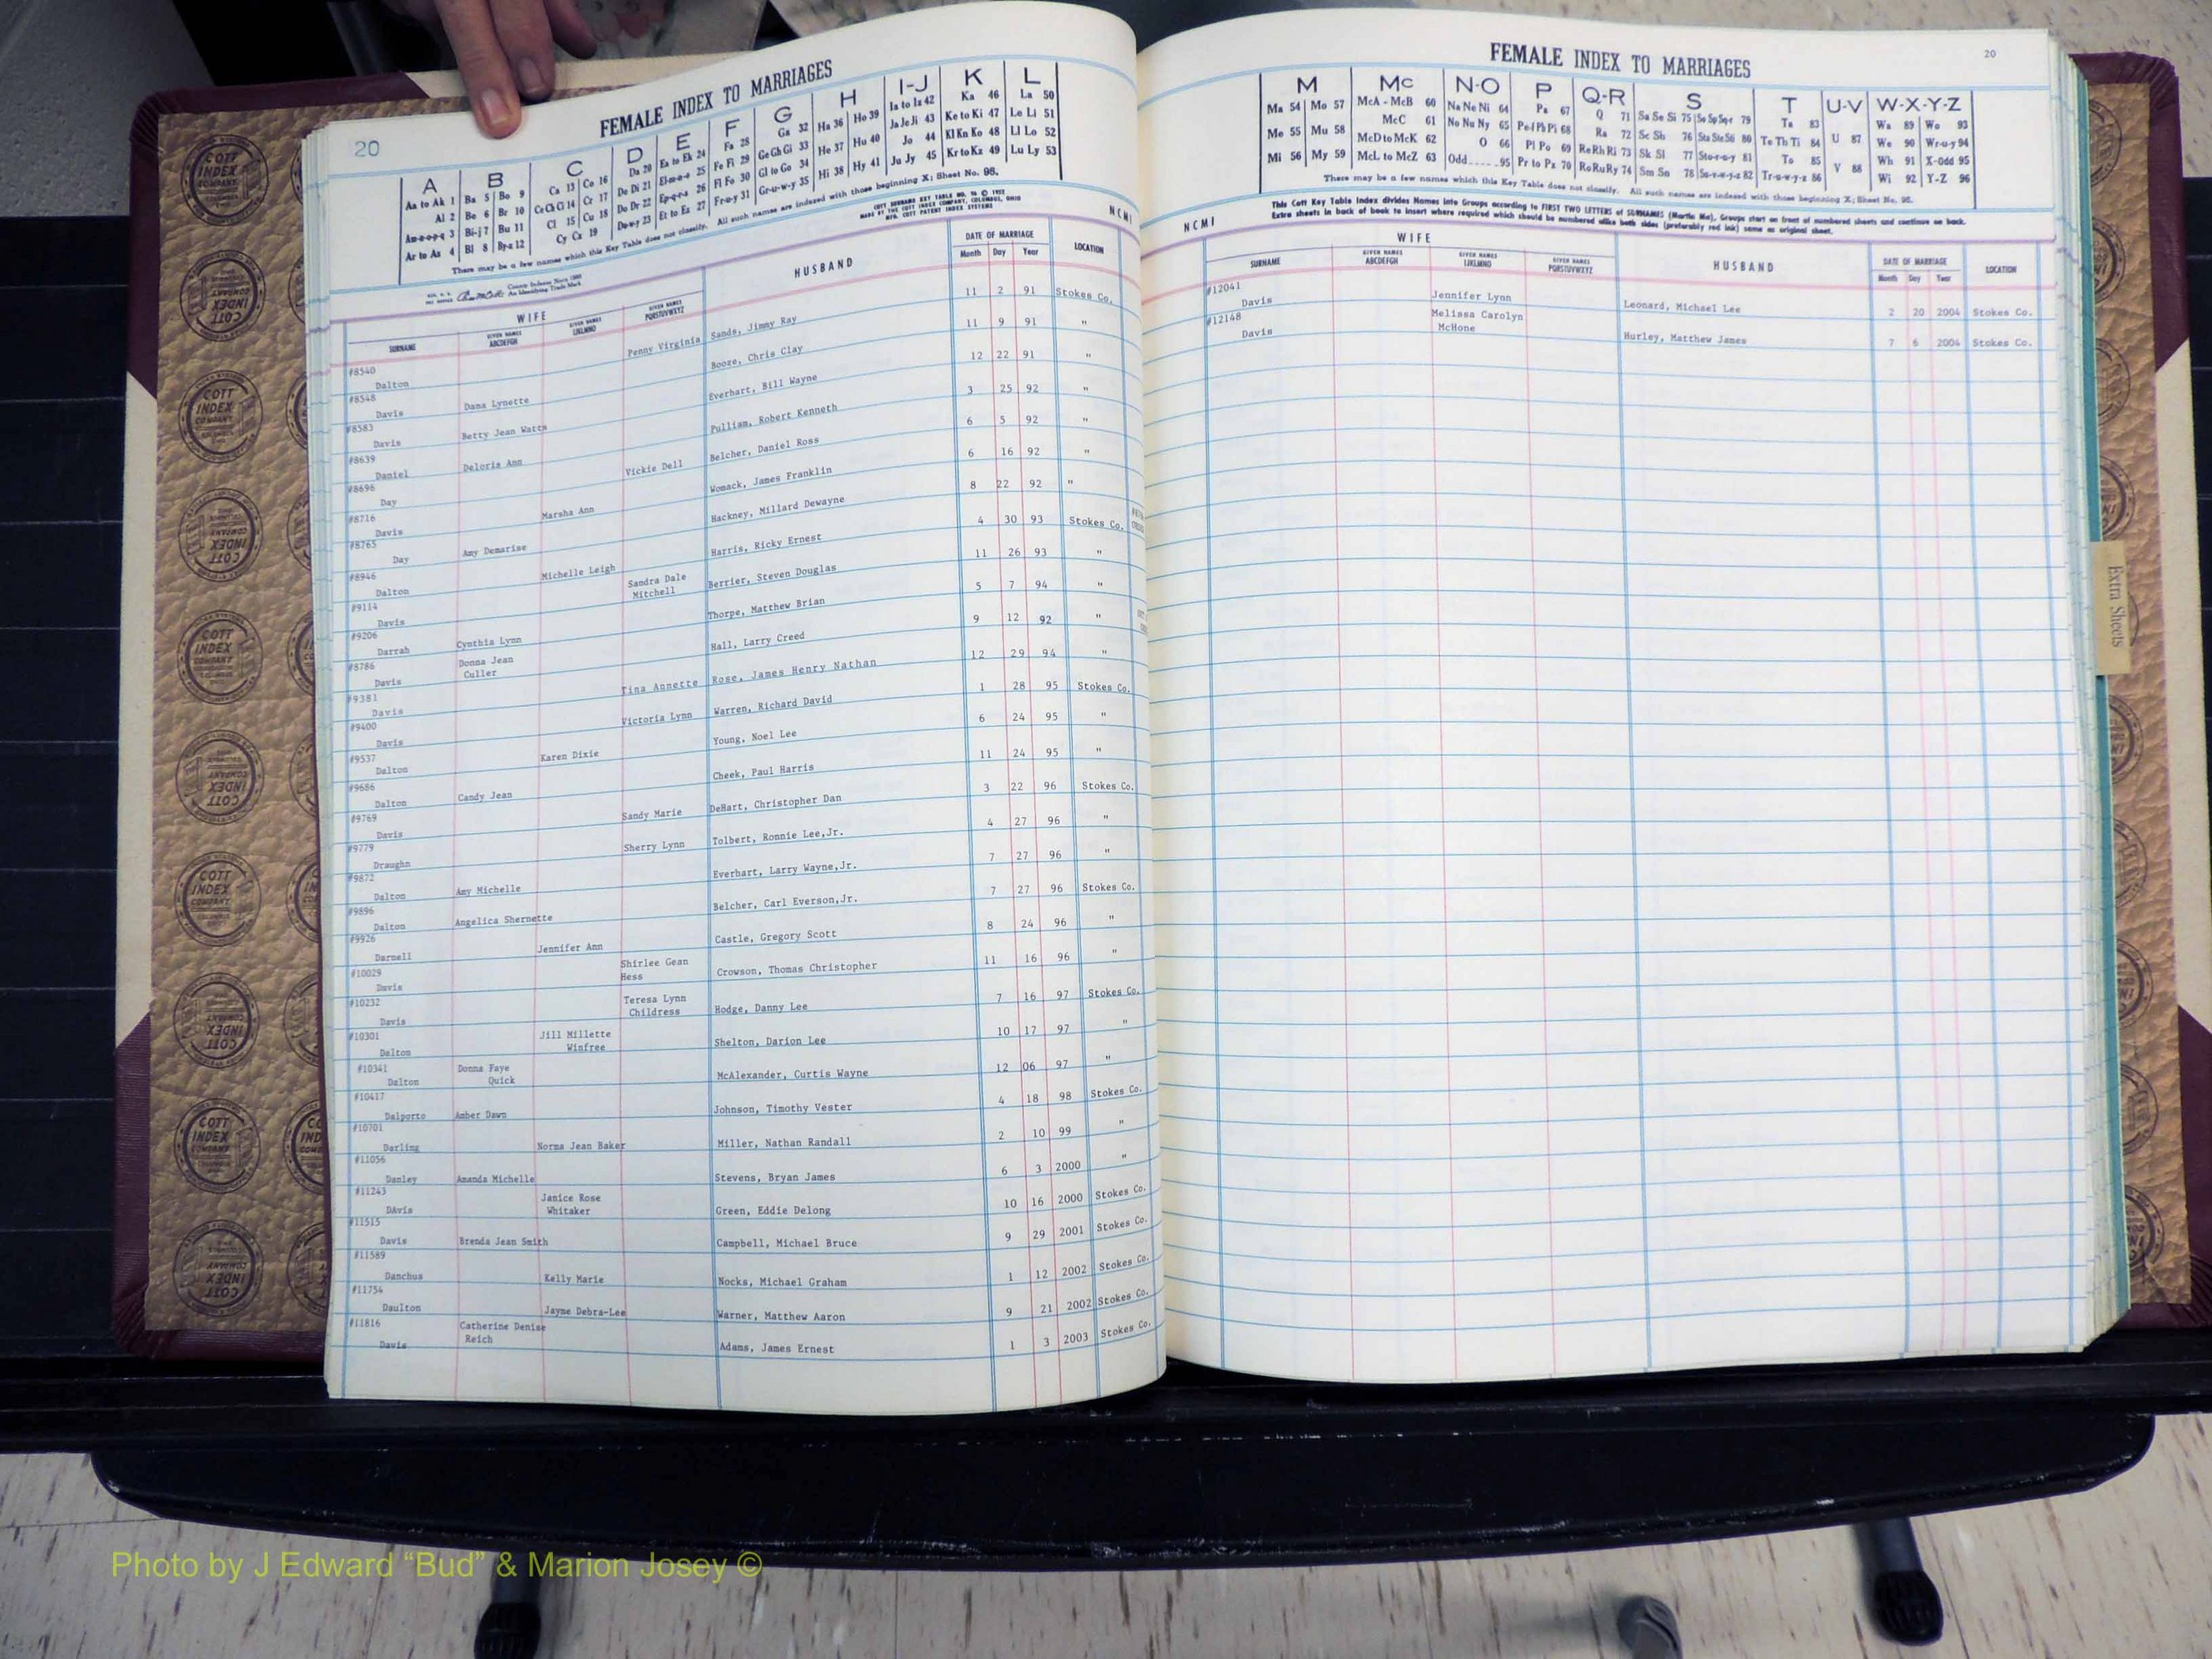 20
FEMALE INDEX TO MARRIAGES
A B C D E F G H I-J K L
Aa to Ak 1 Ba 5 Bo 9 Ca 13 Co 16 Da 20 Ea to Ek 24 Fa 28 Ga 32 Ha 36 Ho 39 Ia to Iz 42 Ka 46 La 50
Al 2 Be 6 Br 10 Ce Ch Ci 14 Cr 17 De Di 21 El-m-n-o 25 Fe Fi 29 Ge Gh Gi 33 He 37 Hu 40 Ja Je Ji 43 Ke to Ki 47 Le Li 51
Am-n-o-p-q 3 Bi-j 7 Bu 11 Cl 15 Cu 18 Do Dr 22 Ep-q-r-s 26 Fl Fo 30 Gl to Go 34 Hi 38 Hy 41 Jo 44 Kl Kn Ko 48 Ll Lo 52
Ar to Az 4 Bl 8 By-z 12 Cy Cz 19 Du-w-y 23 Et to Ez 27 Fr-u-y 31 Gr-u-w-y 35 Ju Jy 45 Kr to Kz 49 Lu Ly 53
There may be a few names which this Key Table does not classify. All such names are indexed with those beginning X; Sheet No. 95.
COTT INDEX COMPANY, COLUMBUS, OHIO
NCMI
WIFE HUSBAND DATE OF MARRIAGE LOCATION
SURNAME GIVEN NAMES ABCDEFGH GIVEN NAMES IJKLMNO GIVEN NAMES PQRSTUVWXYZ Month Day Year
#8540
Dalton Penny Virginia Sands, Jimmy Ray 11 2 91 Stokes Co.
#8548
Davis Dana Lynette Booze, Chris Clay 11 9 91 "
#8583
Davis Betty Jean Watts Everhart, Bill Wayne 12 22 91 "
#8639
Daniel Deloris Ann Pulliam, Robert Kenneth 3 25 92 "
#8696
Day Vickie Dell Belcher, Daniel Ross 6 5 92 "
#8716
Davis Marsha Ann Womack, James Franklin 6 16 92 "
#8765
Day Amy Demarise Hackney, Millard Dewayne 8 22 92 "
#8946
Dalton Michelle Leigh Harris, Ricky Ernest 4 30 93 Stokes Co.
#9114
Davis Sandra Dale Mitchell Berrier, Steven Douglas 11 26 93 "
#9206
Darrah Cynthia Lynn Thorpe, Matthew Brian 5 7 94 "
#8786
Davis Donna Jean Culler Hall, Larry Creed 9 12 92 "
#9381
Davis Tina Annette Rose, James Henry Nathan 12 29 94 "
#9400
Davis Victoria Lynn Warren, Richard David 1 28 95 Stokes Co.
#9537
Dalton Karen Dixie Young, Noel Lee 6 24 95 "
#9686
Dalton Candy Jean Cheek, Paul Harris 11 24 95 "
#9769
Davis Sandy Marie DeHart, Christopher Dan 3 22 96 Stokes Co.
#9779
Draughn Sherry Lynn Tolbert, Ronnie Lee,Jr. 4 27 96 "
#9872
Dalton Amy Michelle Everhart, Larry Wayne,Jr. 7 27 96 "
#9896
Dalton Angelica Shernette Belcher, Carl Everson,Jr. 7 27 96 Stokes Co.
#9926
Darnell Jennifer Ann Castle, Gregory Scott 8 24 96 "
#10029
Davis Shirlee Gean Hess Crowson, Thomas Christopher 11 16 96 "
#10232
Davis Teresa Lynn Childress Hodge, Danny Lee 7 16 97 Stokes Co.
#10301
Dalton Jill Millette Winfree Shelton, Darion Lee 10 17 97 "
#10341
Dalton Donna Faye Quick McAlexander, Curtis Wayne 12 06 97 "
#10417
Dalporto Amber Dawn Johnson, Timothy Vester 4 18 98 Stokes Co.
#10701
Darling Norma Jean Baker Miller, Nathan Randall 2 10 99 "
#11056
Danley Amanda Michelle Stevens, Bryan James 6 3 2000 "
#11243
DAvis Janice Rose Whitaker Green, Eddie Delong 10 16 2000 Stokes Co.
#11515
Davis Brenda Jean Smith Campbell, Michael Bruce 9 29 2001 Stokes Co.
#11589
Danchus Kelly Marie Nocks, Michael Graham 1 12 2002 Stokes Co.
#11754
Daulton Jayme Debra-Lee Warner, Matthew Aaron 9 21 2002 Stokes Co.
#11816
Davis Catherine Denise Reich Adams, James Ernest 1 3 2003 Stokes Co.
FEMALE INDEX TO MARRIAGES
20
M Mc N-O P Q-R S T U-V W-X-Y-Z
Ma 54 Mo 57 McA - McB 60 Na Ne Ni 64 Pa 67 Q 71 Sa Se Si 75 So Sp Sq-r 79 Ta 83 Wa 89 Wo 93
Me 55 Mu 58 McC 61 No Nu Ny 65 Pe-f Ph Pi 68 Ra 72 Sc Sh 76 Sta Ste Sti 80 Te Th Ti 84 U 87 We 90 Wr-u-y 94
Mi 56 My 59 McD to McK 62 O 66 Pl Po 69 Re Rh Ri 73 Sk Sl 77 Sto-r-u-y 81 To 85 V 88 Wh 91 X-Odd 95
McL to McZ 63 Odd 95 Pr to Pz 70 Ro Ru Ry 74 Sm Sn 78 Su-v-w-y-z 82 Tr-u-w-y-z 86 Wi 92 Y-Z 96
There may be a few names which this Key Table does not classify. All such names are indexed with those beginning X; Sheet No. 95.
This Cott Key Table Index divides Names into Groups according to FIRST TWO LETTERS of SURNAMES (Martin Ma). Groups start on front of numbered sheets and continue on back.
Extra sheets in back of book to insert where required which should be numbered alike both sides (preferably red ink) same as original sheet.
NCMI
WIFE HUSBAND DATE OF MARRIAGE LOCATION
SURNAME GIVEN NAMES ABCDEFGH GIVEN NAMES IJKLMNO GIVEN NAMES PQRSTUVWXYZ Month Day Year
#12041
Davis Jennifer Lynn Leonard, Michael Lee 2 20 2004 Stokes Co.
#12148
Davis Melissa Carolyn McHone Hurley, Matthew James 7 6 2004 Stokes Co.
Extra Sheets
COTT INDEX COMPANY
Photo by J Edward “Bud” & Marion Josey ©